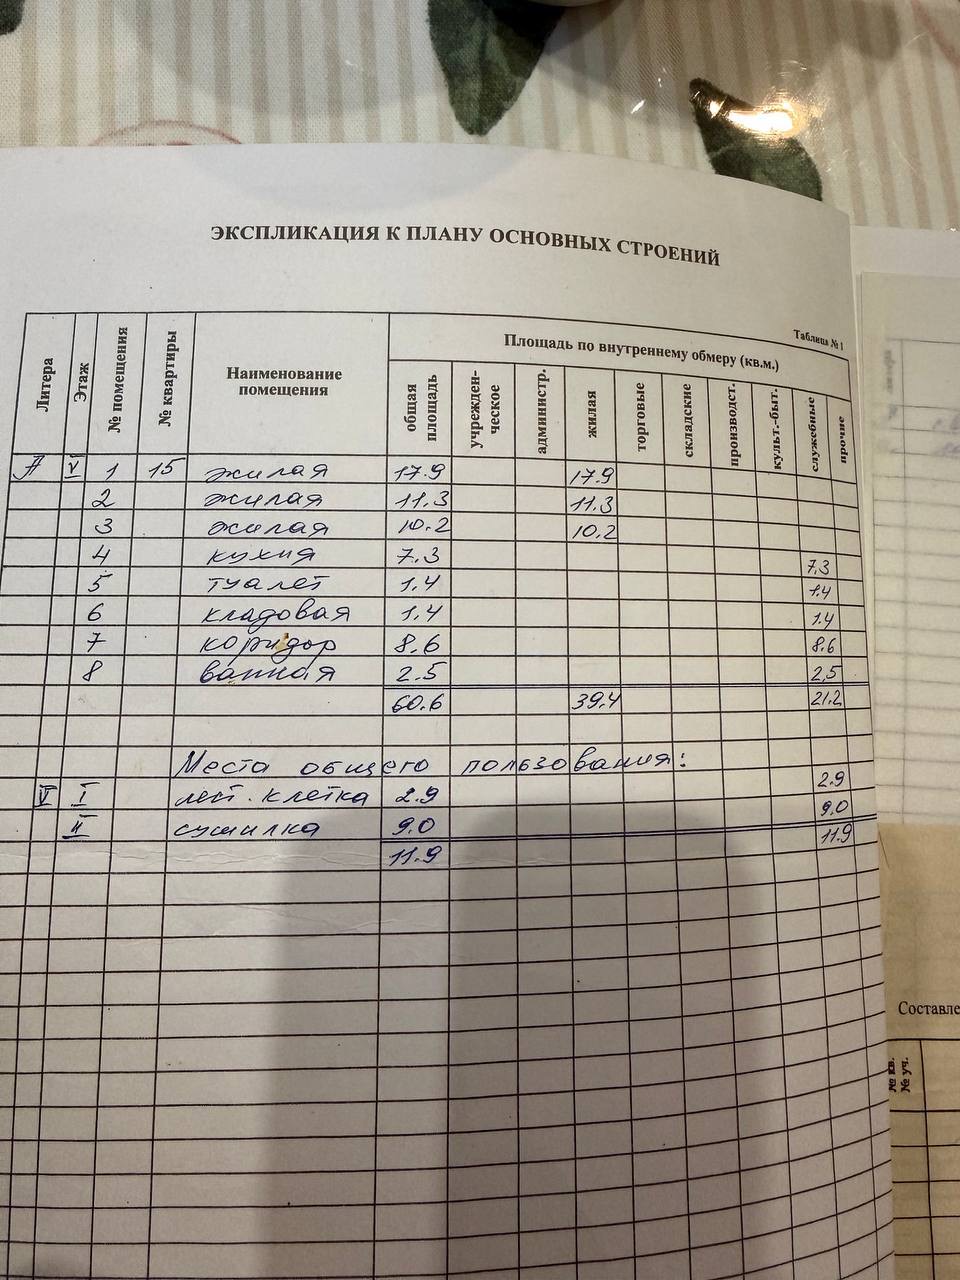 ЭКСПЛИКАЦИЯ К ПЛАНУ ОСНОВНЫХ СТРОЕНИЙ
Таблица № 1
Литера Этаж № помещения № квартиры Наименование помещения Площадь по внутреннему обмеру (кв.м.)
общая площадь учрежден-ческое администр. жилая торговые складские производст. культ.-быт. служебные прочие
А V 1 15 жилая 17.9 17.9
2 жилая 11.3 11.3
3 жилая 10.2 10.2
4 кухня 7.3 7.3
5 туалет 1.4 1.4
6 кладовая 1.4 1.4
7 коридор 8.6 8.6
8 ванная 2.5 2,5
60.6 39.4 21.2
Места общего пользования:
VI I лест. клетка 2.9 2.9
II сушилка 9.0 9.0
11.9 11.9
Составле
№ кв.
№ уч.